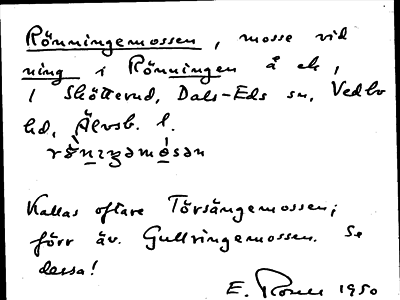 Rönningemossen, mosse vid
ning i Rönningen å ek,
i Skötterud, Dals-Eds sn, Vedbo
hd, Älvsb. l.
Kallas oftare Törsängemossen;
förr äv. Gullringemossen. Se
dessa!
E. 1950